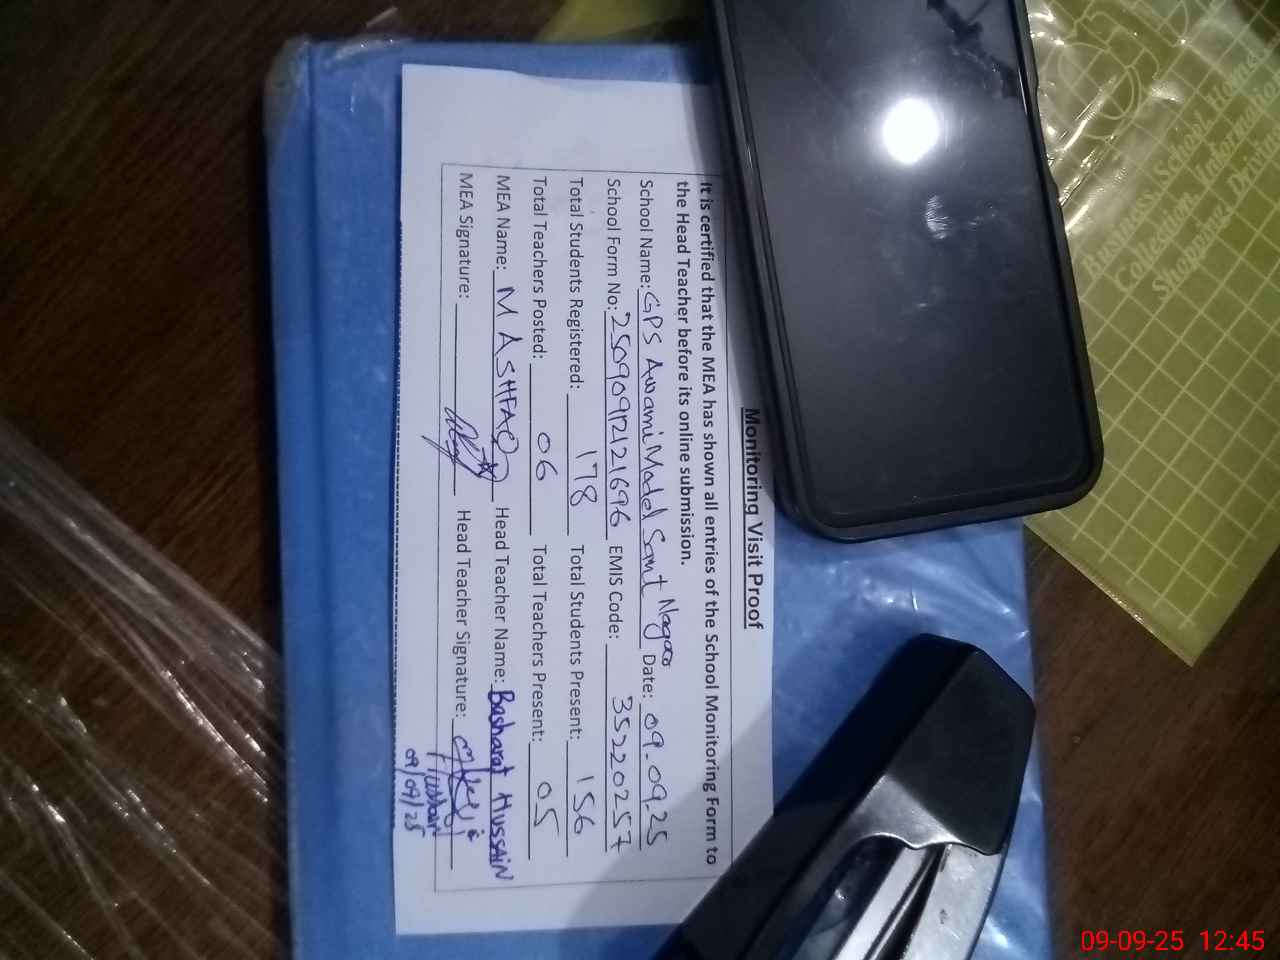 Monitoring Visit Proof
It is certified that the MEA has shown all entries of the School Monitoring Form to
the Head Teacher before its online submission.
School Name: GPS Awami Model Sant Nagar Date: 09.09.25
School Form No: 25090912121696 EMIS Code: 35220257
Total Students Registered: 178 Total Students Present: 156
Total Teachers Posted: 06 Total Teachers Present: 05
MEA Name: M ASHFAQ Head Teacher Name: Basharat HUSSAIN
MEA Signature: Head Teacher Signature:
09/09/25
School
Information
09-09-25 12:45